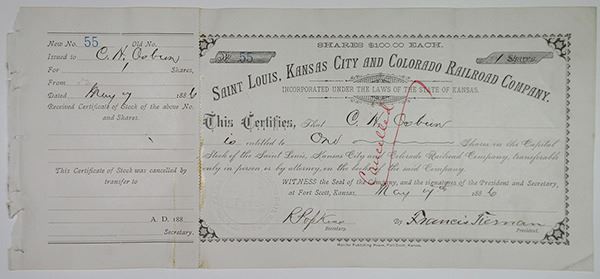 New No. 55 Old No.
Issued to C. N. Osburn
For 1 Shares,
From
Dated May 7 1886
Received Certificate of Stock of the above No.
and Shares.
This Certificate of Stock was cancelled by
transfer to
A. D. 188
Secretary.
SHARES $100.00 EACH.
No 55
1 Shares.
SAINT LOUIS, KANSAS CITY AND COLORADO RAILROAD COMPANY.
INCORPORATED UNDER THE LAWS OF THE STATE OF KANSAS.
This Certifies, That C. N. Osburn
is entitled to One Shares in the Capital
Stock of the Saint Louis, Kansas City and Colorado Railroad Company, transferable
only in person or by attorney, on the books of the said Company.
Cancelled
WITNESS the Seal of the Company, and the signatures of the President and Secretary,
at Fort Scott, Kansas, May 7th 1886
Secretary.
Francis Tiernan
President.
Monitor Publishing House, Fort Scott, Kansas.